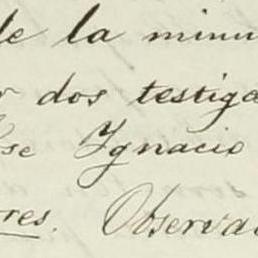 de la minu
r dos testiga
se Ygnacio
res. Observa